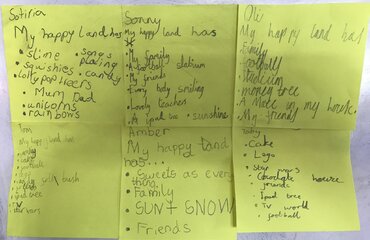 Sotiria
My happy land has
• slime • songs playing
• squishies • candy
• lolly pop trees
• Mum Dad
• unicorns
• rainbows
Sonny
My happy land has
• My family
• A football stadium
• My friends
• Every body smiling
• Lovely teachers
• A ipad tree • sunshine
Oli
My happy land has
Family
• football
• stadium
• money tree
• A in my house.
• My friends
Tom
My happy land has
• family
• football
bush
• TV
• star wars
Amber
My happy land
has...
• Sweets as every
thing.
• Family
• SUN + SNOW
• Friends
Toby
• Cake
• Lego
• Star wars
• Chocolate house
• friends
• Ipad tree
• TV world
• football